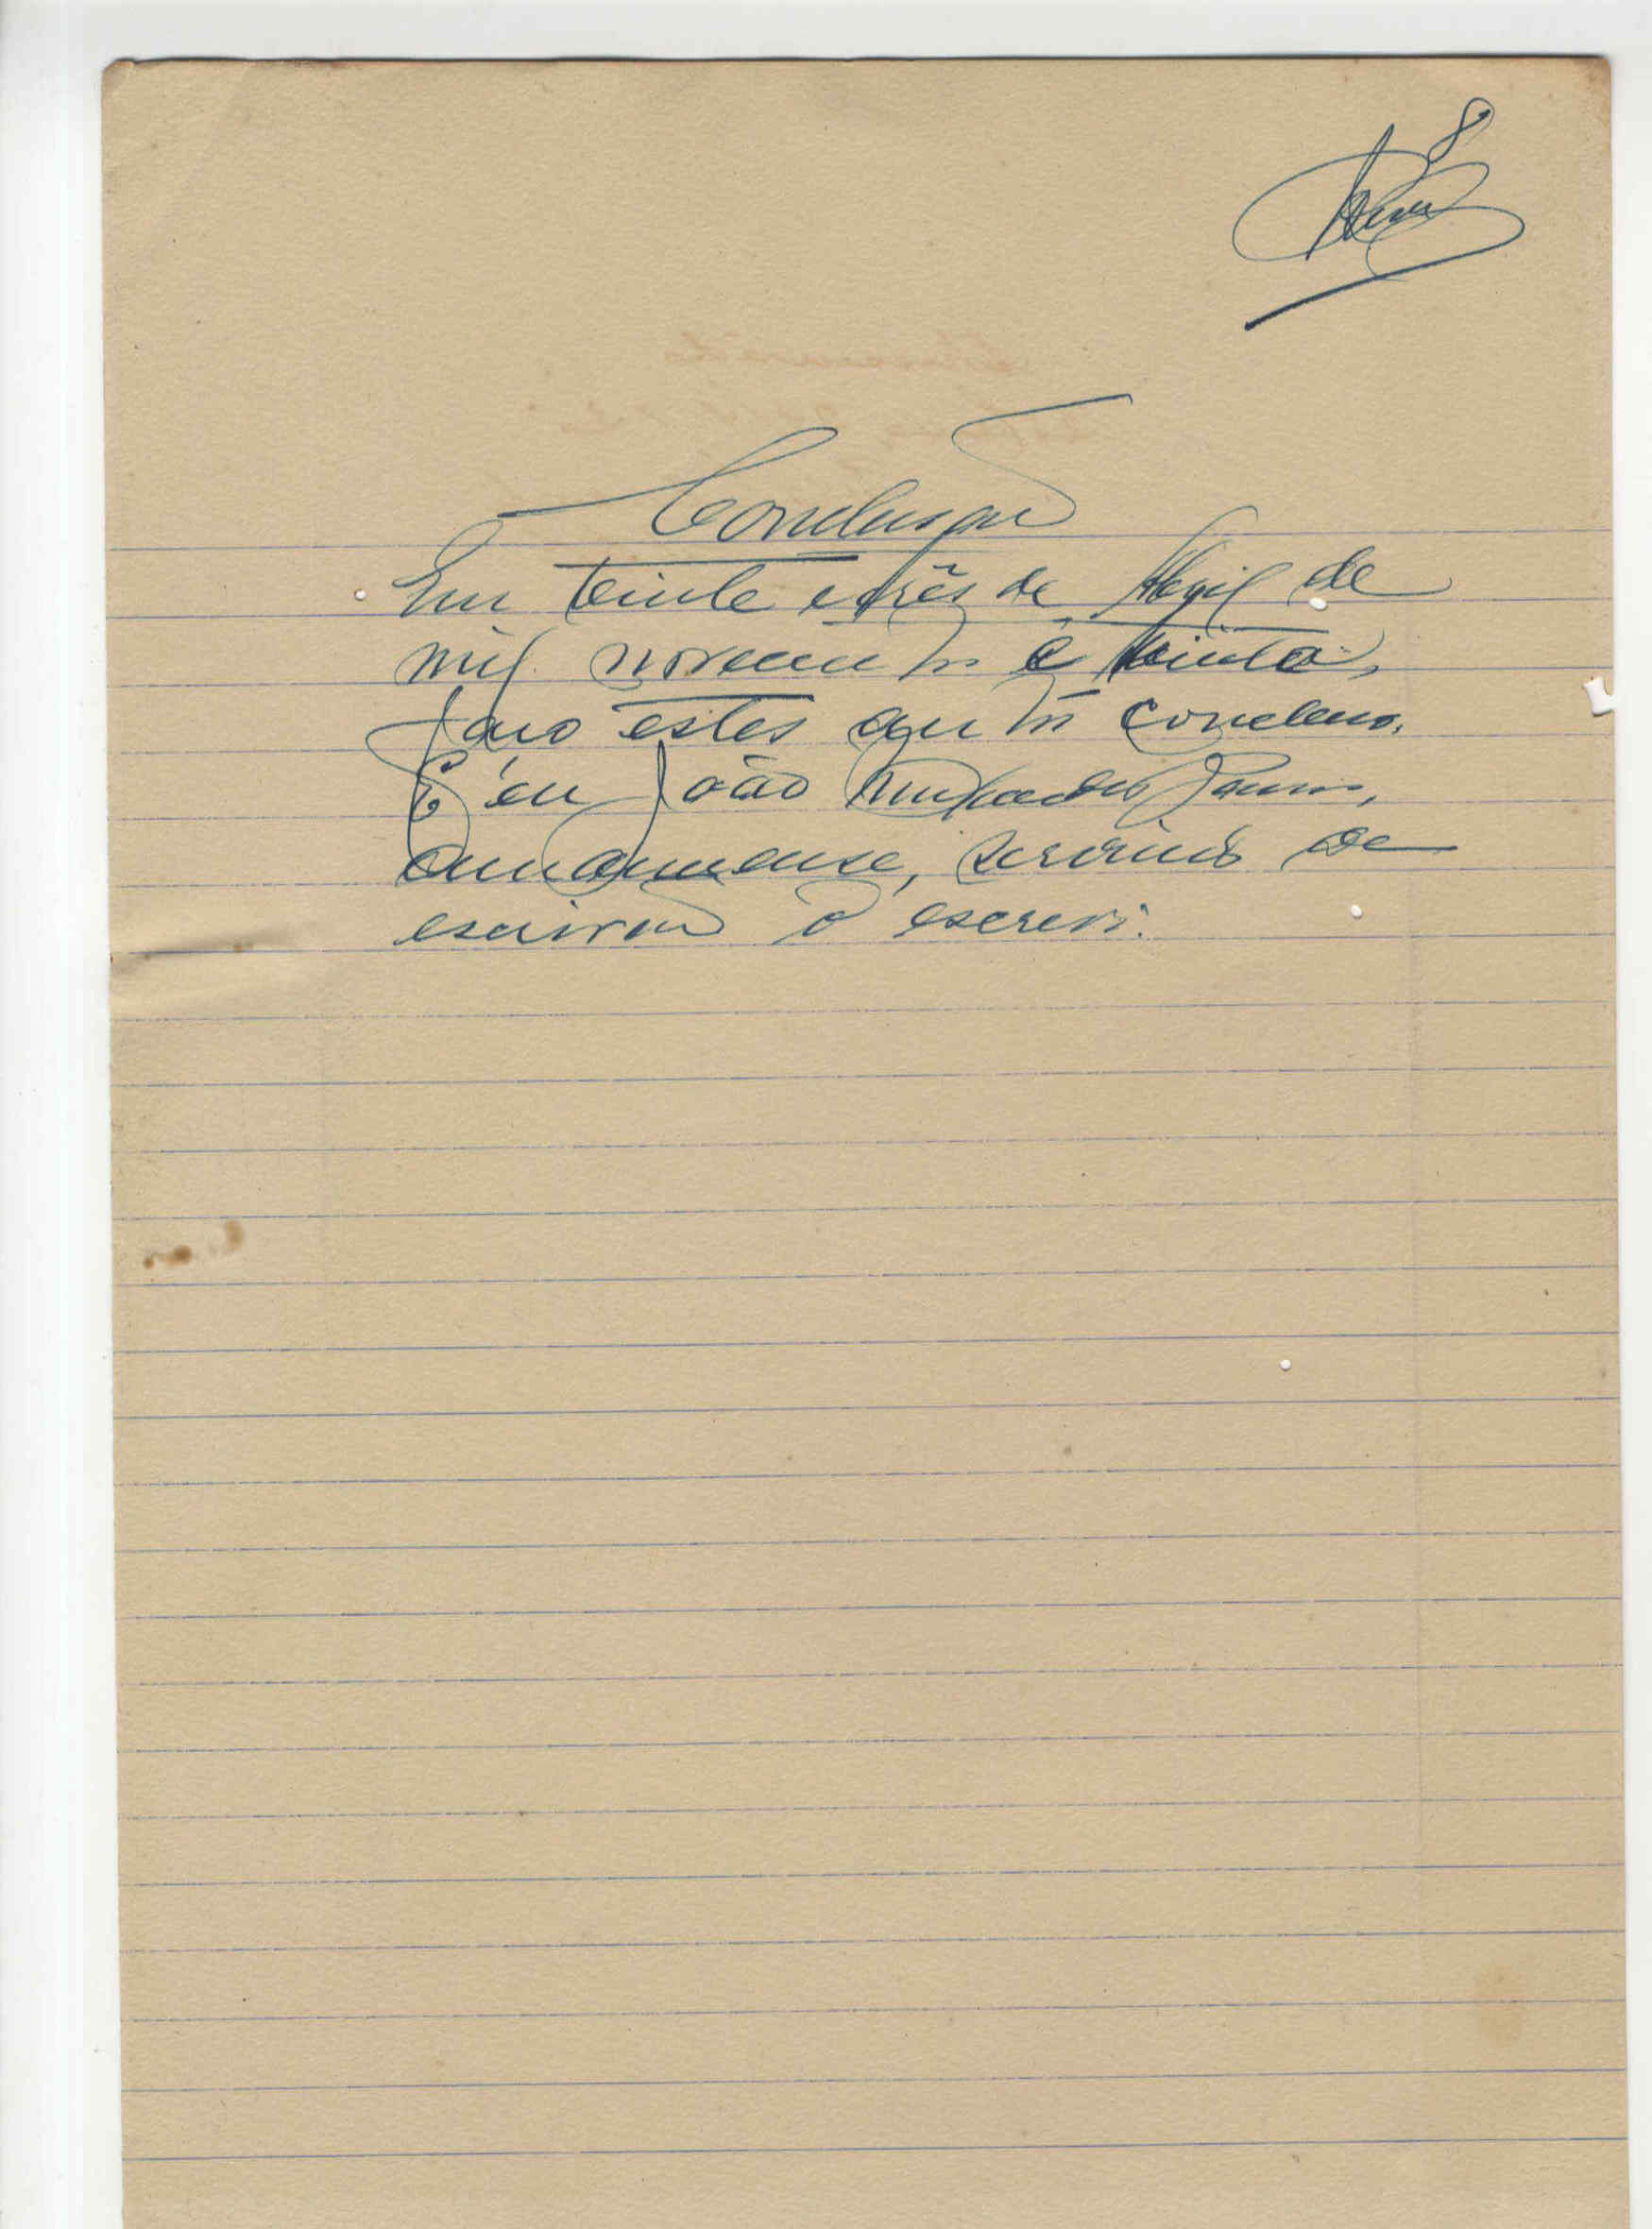 8
Conclusão
Em vinte e três de Abril de
mil novecentos e trinta,
faço estes autos conclusos.
E eu João Machado
amanuense, servindo de
escrivão o escrevi.